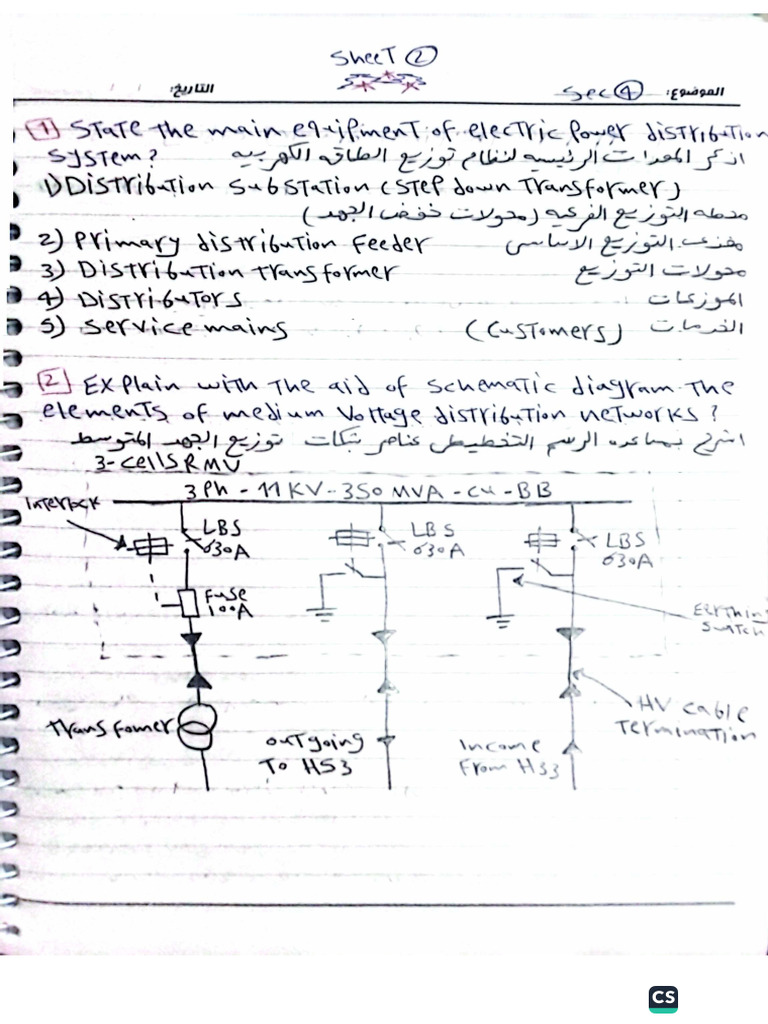 Sheet 2
الموضوع: Sec 4 التاريخ: / /
1 State the main equipment of electric power distribution
System? اذكر المعدات الرئيسيه لنظام توزيع الطاقه الكهربيه
1) Distribution Substation (Step down transformer)
محطه التوزيع الفرعيه (محولات خفض الجهد)
2) Primary distribution Feeder مغذى التوزيع الاساسى
3) Distribution transformer محولات التوزيع
4) Distributors الموزعات
5) Service mains (Customers) الخدمات
2 Explain with the aid of schematic diagram the
elements of medium Voltage distribution networks?
اشرح بمساعده الرسم التخطيطى عناصر شبكات توزيع الجهد المتوسط
3-cells RMU
3Ph - 11KV - 350 MVA - cu - BB
Interlock
LBS
630A
LBS
630A
LBS
630A
Fuse
100A
Earthing
Switch
HV cable
Termination
Transfomer
outgoing
To H53
Income
From H33
CS